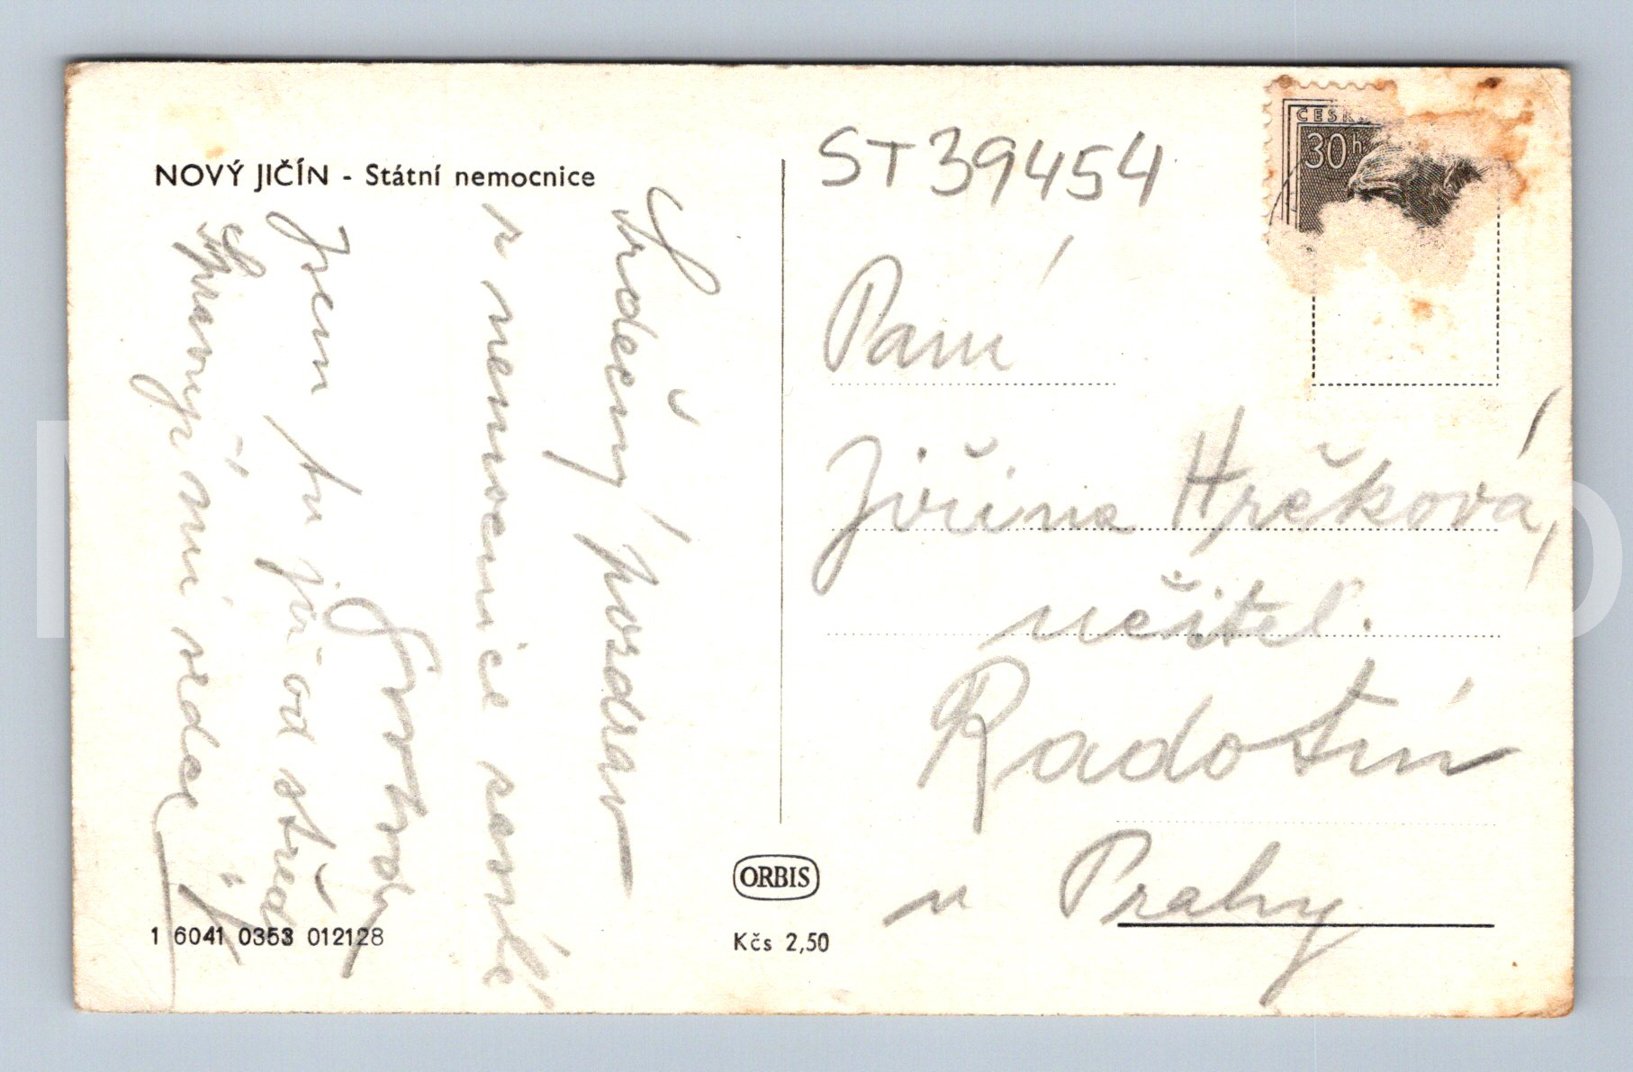 NOVÝ JIČÍN - Státní nemocnice
Srdečný pozdrav
z nemocnice
Jsem tu již od středy
Spravují mi srdce
1 6041 0353 012128
ORBIS
Kčs 2,50
ST39454
ČESK
30h
Paní
Jiřina Hrčková,
učitel.
Radotín
u Prahy